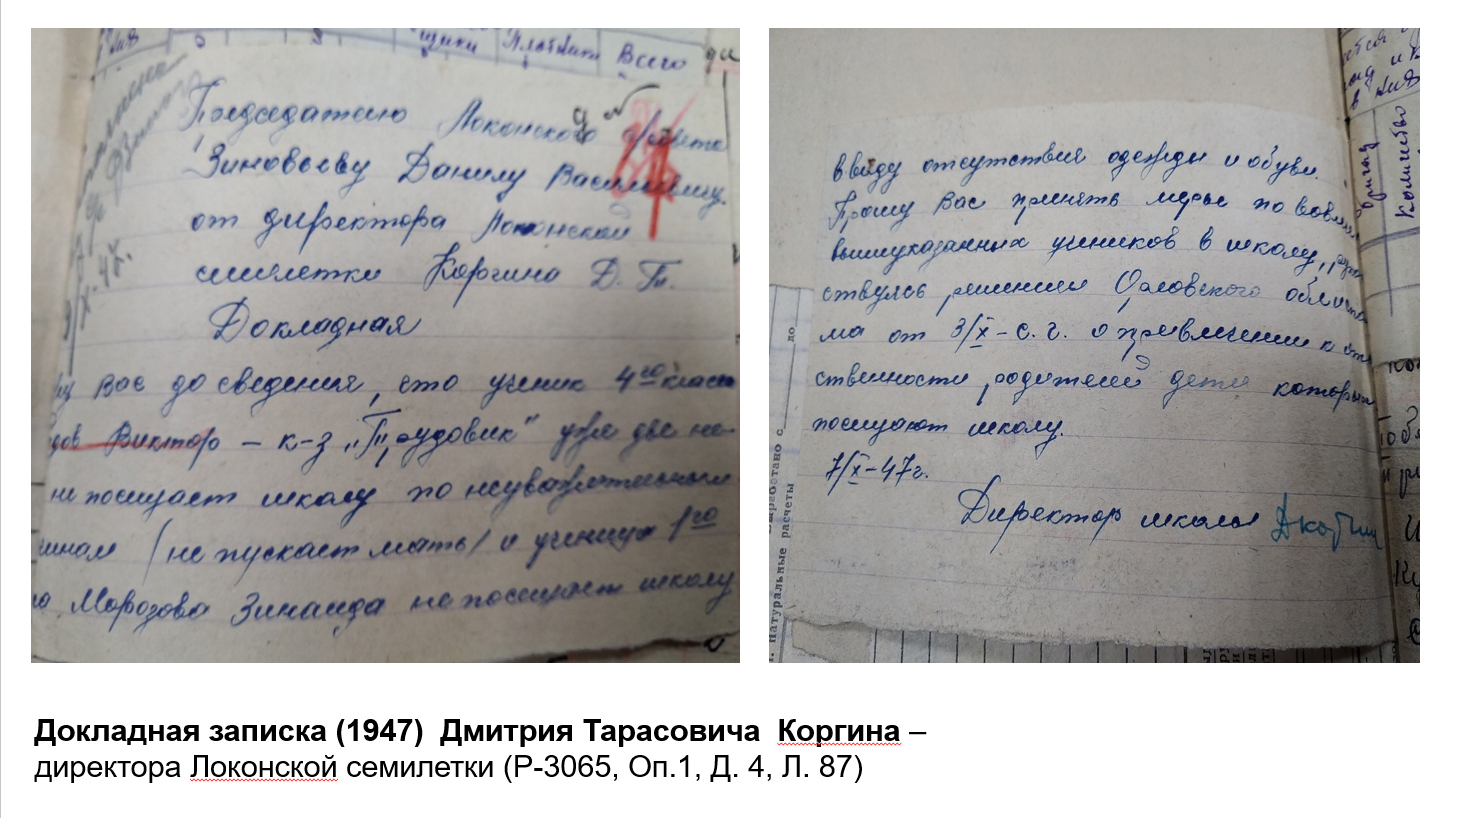 щики Плотники Всего
Председателю Локонского с/совета
Зиновьеву Данилу Васильевичу.
от директора Локонской
семилетки Коргина Д. Т.
Докладная
Вас до сведения, что ученик 4го класс
дов Виктор – к-з „Трудовик" уже две не-
не посещает школу по неуважительным
чинам (не пускает мать) и ученица 1го
Морозова Зинаида не посещает школу
ввиду отсутствия одежды и обуви.
Прошу Вас принять меры по вовл
вышеуказанных учеников в школу,
ствуясь решением Орловского облиспо
ма от 3/X – с. г. о привлечении к от
ственности родителей детей которых
посещают школу.
7/X – 47 г.
Директор школы ДКоргин
Натуральные расчеты
Количество
Докладная записка (1947) Дмитрия Тарасовича Коргина –
директора Локонской семилетки (Р-3065, Оп.1, Д. 4, Л. 87)